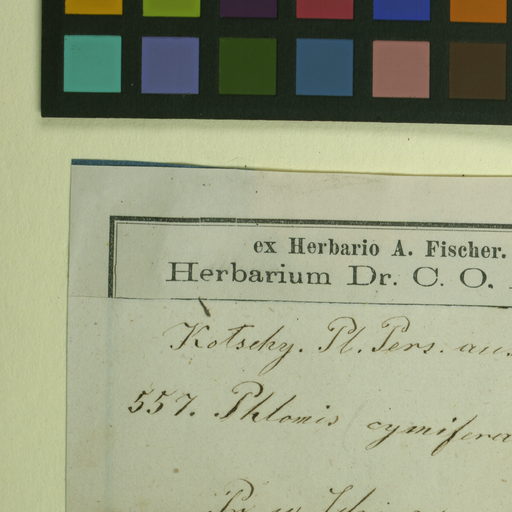 ex Herbario A. Fischer.
Herbarium Dr. C. O.
Kotschy. Pl. Pers. aus
557. Phlomis cymifera